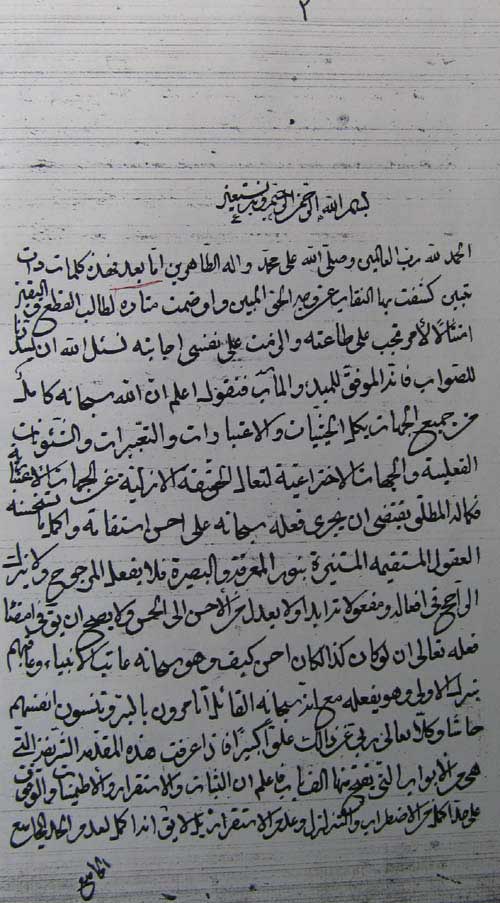 ٢
بسم الله الرحمن الرحيم وبه نستعين
الحمد لله رب العالمين وصلى الله على محمد واله الطاهرين اما بعد فهذه كلمات ذات
تبيين كشفت بها النقاب عن وجه الحق المبين واوضحت مناره لطالب القطع واليقين
امتثالا لأمر من تجب على طاعته والزمت على نفسي اجابته نسئل الله ان يسدد
للصواب فانه الموفق للمبدء والمآب فنقول اعلم ان الله سبحانه كامل
من جميع الجهات بكل الحيثيات والاعتبارات والتعبيرات والشئونات
الفعلية والجهات الاختراعية لتعالى الحقيقة الازلية عن الجهات
فكماله المطلق يقتضى ان يجرى فعله سبحانه على احسن استقامة واكمل ما تستحسنه
العقول المستقيمة المستنيرة بنور المعرفة والبصيرة فلا يفعل المرجوح ولا يترك
الراجح في افعاله ومفعولاته ابدا ولا يعدل من الأحسن الى الحسن ولا يصح ان يق في
فعله تعالى ان لو كان كذا لكان احسن كيف وهو سبحانه عاتب الانبياء وعاتبهم
بترك الاولى وهو يفعله مع انه سبحانه القائل أتامرون بالبر وتنسون انفسكم
حاشا وكلا تعالى ربي عن ذلك علوا كبيرا فاذا عرفت هذه المقدمة الشريفة التي
هي من الابواب التي يفتح منها الف باب فاعلم ان الثبات والاستقرار والاطمينان والوقوف
على حد اكمل من الاضطراب والتزلزل وعدم الاستقرار بل لا يق انه اكمل لعدم الحد الجامع
الجامع